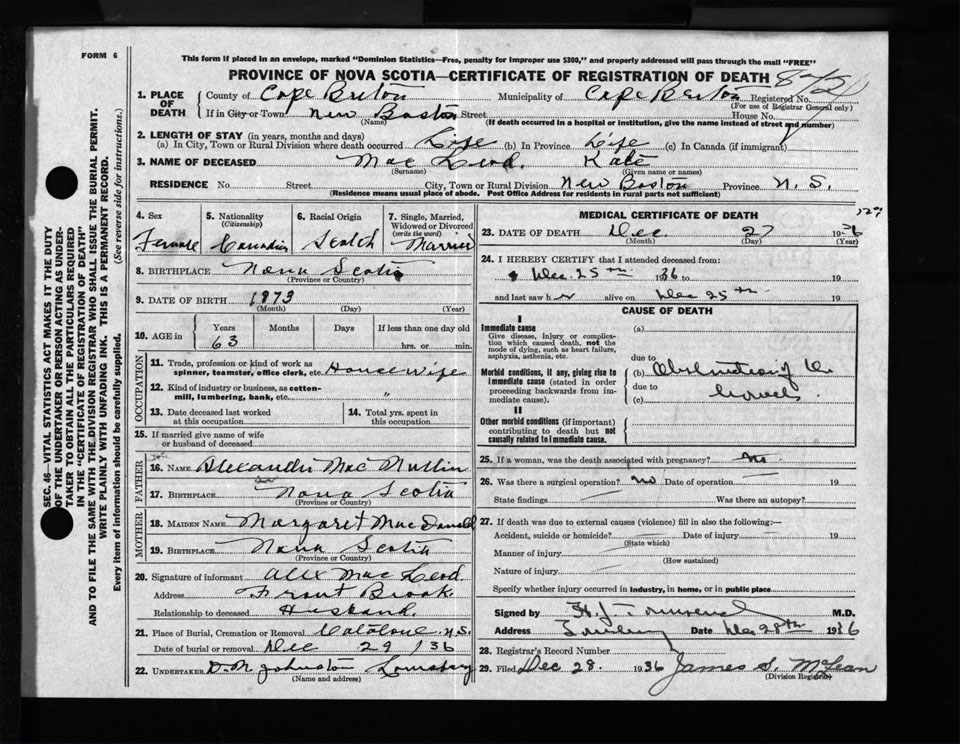 FORM 6
This form if placed in an envelope, marked "Dominion Statistics—Free, penalty for improper use $300," and properly addressed will pass through the mail "FREE"
PROVINCE OF NOVA SCOTIA—CERTIFICATE OF REGISTRATION OF DEATH
1. PLACE OF DEATH
County of Cape Breton Municipality of Cape Breton Registered No.
(For use of Registrar General only)
If in City or Town New Boston Street House No.
(Name) (If death occurred in a hospital or institution, give the name instead of street and number)
2. LENGTH OF STAY (in years, months and days)
(a) In City, Town or Rural Division where death occurred Life (b) In Province Life (c) In Canada (if immigrant)
3. NAME OF DECEASED Mac Leod. Kate
(Surname) (Given name or names)
RESIDENCE No Street City, Town or Rural Division New Boston Province N. S.
(Residence means usual place of abode. Post Office Address for residents in rural parts not sufficient)
4. Sex
Female
5. Nationality
(Citizenship)
Canadian
6. Racial Origin
Scotch
7. Single, Married, Widowed or Divorced
(write the word)
Married
8. BIRTHPLACE Nova Scotia
(Province or Country)
9. DATE OF BIRTH 1873
(Month) (Day) (Year)
10. AGE in Years Months Days If less than one day old
63 hrs. or min.
OCCUPATION
11. Trade, profession or kind of work as spinner, teamster, office clerk, etc. House Wife
12. Kind of industry or business, as cotton-mill, lumbering, bank, etc. "
13. Date deceased last worked at this occupation
14. Total yrs. spent in this occupation
15. If married give name of wife or husband of deceased
FATHER
16. NAME Alexander Mac Mullin
17. BIRTHPLACE Nova Scotia
(Province or Country)
MOTHER
18. MAIDEN NAME Margaret MacDonald
19. BIRTHPLACE Nova Scotia
(Province or Country)
20. Signature of informant Alex Mac Leod.
Address Front Brook.
Relationship to deceased Husband.
21. Place of Burial, Cremation or Removal Catalone N.S.
Date of burial or removal Dec 29 /36
22. UNDERTAKER D. N. Johnston Louisburg
(Name and address)
MEDICAL CERTIFICATE OF DEATH
23. DATE OF DEATH Dec 27 1936
(Month) (Day) (Year)
24. I HEREBY CERTIFY that I attended deceased from:
Dec. 25th 1936 to 19
and last saw her alive on Dec 25th 19
CAUSE OF DEATH
I
Immediate cause
Give disease, injury or complication which caused death, not the mode of dying, such as heart failure, asphyxia, asthenia, etc.
(a)
due to
Morbid conditions, if any, giving rise to immediate cause (stated in order proceeding backwards from immediate cause).
(b) Obstruction of
due to
(c) bowels.
II
Other morbid conditions (if important) contributing to death but not causally related to immediate cause.
25. If a woman, was the death associated with pregnancy? No
26. Was there a surgical operation? no Date of operation 19
State findings Was there an autopsy?
27. If death was due to external causes (violence) fill in also the following:—
Accident, suicide or homicide? Date of injury 19
(State which)
Manner of injury
(How sustained)
Nature of injury
Specify whether injury occurred in industry, in home, or in public place
Signed by M.D.
Address Date Dec 28th 1936
28. Registrar's Record Number
29. Filed Dec 28. 1936 James S. McLean
(Division Registrar)
SEC. 46—VITAL STATISTICS ACT MAKES IT THE DUTY
OF THE UNDERTAKER OR PERSON ACTING AS UNDERTAKER TO OBTAIN ALL THE PARTICULARS REQUIRED
IN THE "CERTIFICATE OF REGISTRATION OF DEATH"
AND TO FILE THE SAME WITH THE DIVISION REGISTRAR WHO SHALL ISSUE THE BURIAL PERMIT.
WRITE PLAINLY WITH UNFADING INK. THIS IS A PERMANENT RECORD.
Every item of information should be carefully supplied. (See reverse side for instructions.)